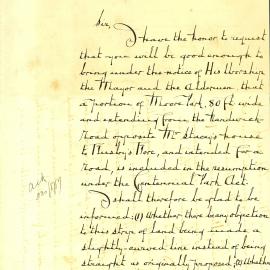 Sir,
I have the honor to request
that you will be good enough to
bring under the notice of His Worship
the Mayor and the Aldermen that
a portion of Moore Park, 80 ft wide
and extending from the Randwick
Road opposite Mr Stacey's house
to Busby's Bore, and intended for a
road, is included in the resumption
under the Centennial Park Act.
I shall therefore be glad to be
informed: (1) Whether there be any objection
to this strip of land being made, a
slightly curved line instead of being
straight as originally proposed; (2) Whether